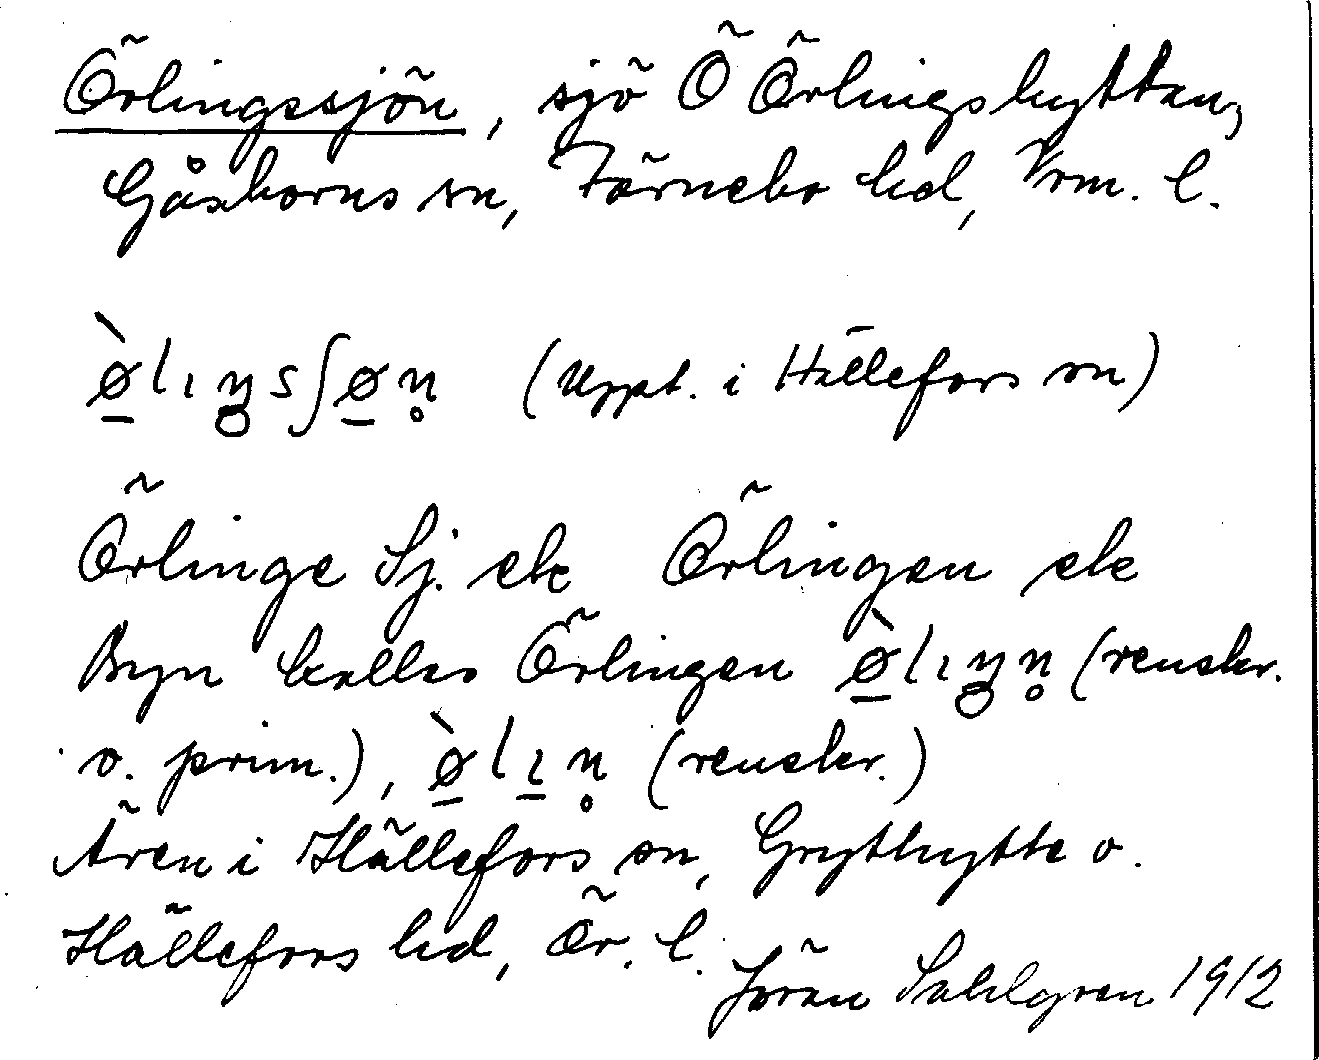 Örlingssjön, sjö Ö Örlingshyttan,
Gåsborns sn, Färnebo hd, Vrm. l.
ø̱̀lıŋsʃø̱n̥ (Uppt. i Hällefors sn)
Örlinge Sj. ek Örlingen ek
Byn kallas Örlingen ø̱̀lıŋn̥ (renskr.
o. prim.), ø̱̀lı̱n̥ (renskr.)
Ären i Hällefors sn, Grythytte o.
Hällefors hd, Ör. l.
Jöran Sahlgren 1912